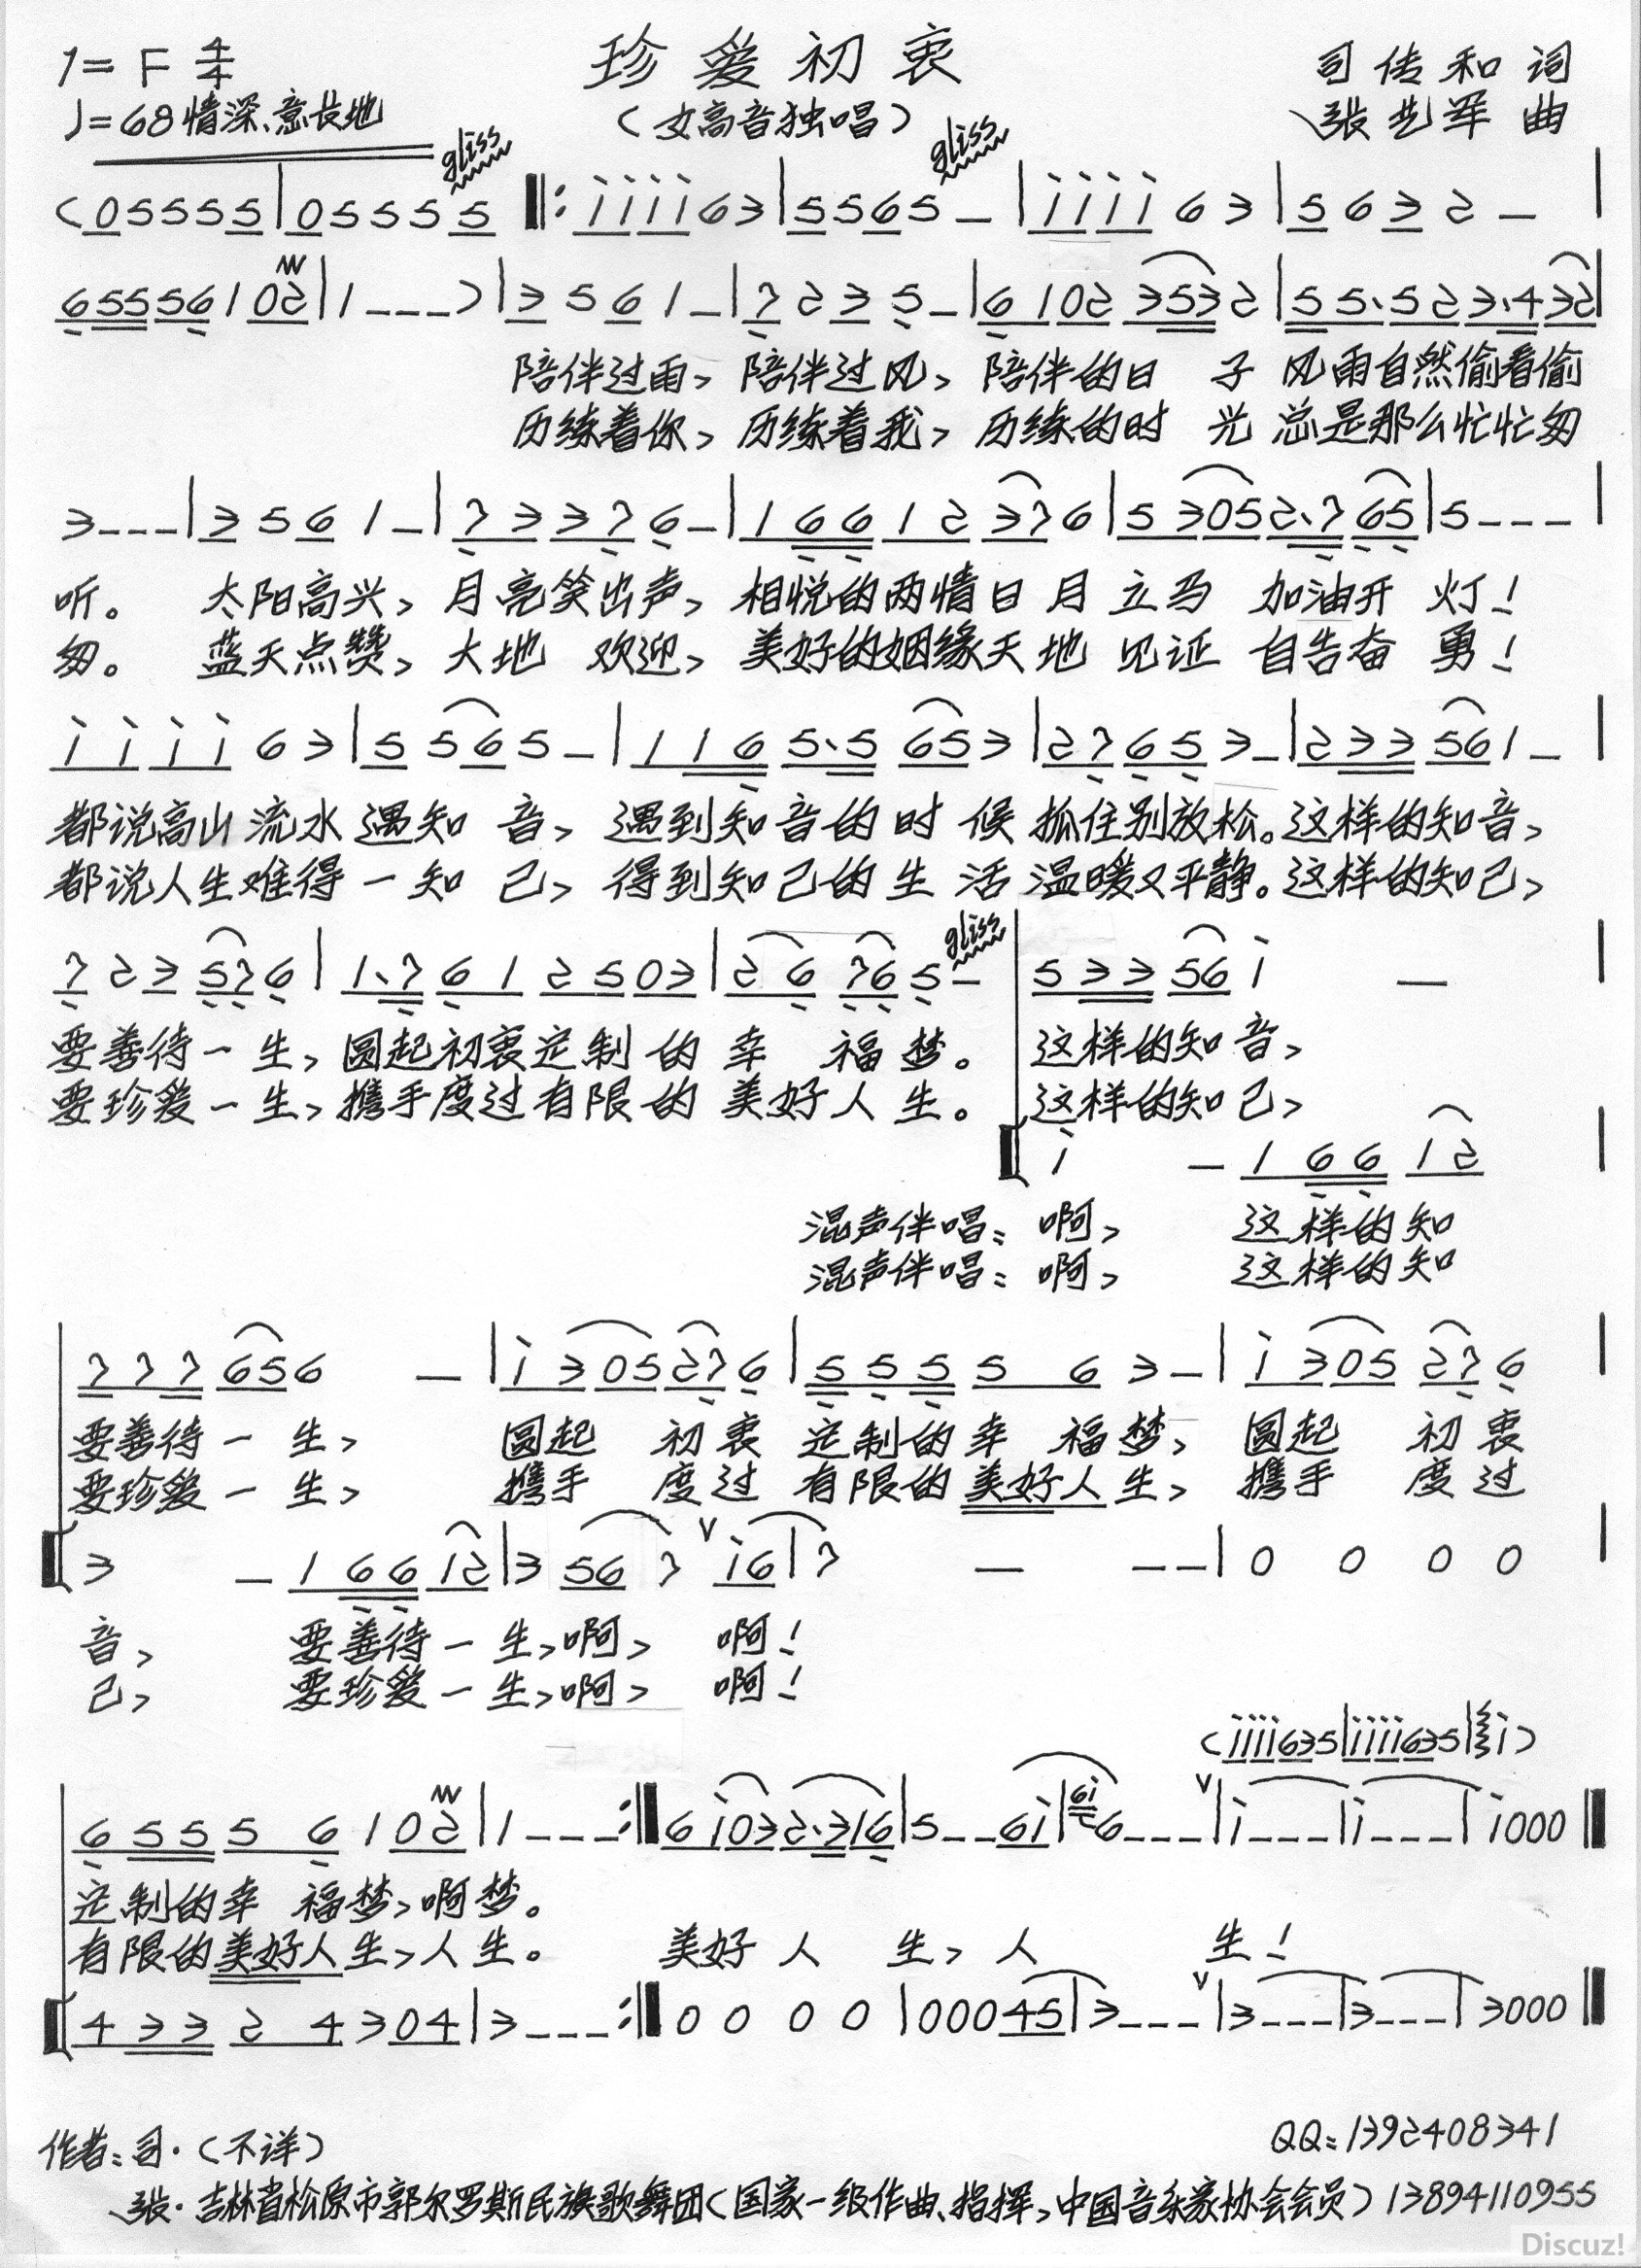 1=F 4/4 珍爱初衷 司传和 词
♩=68 情深、意长地 (女高音独唱) 张艺军 曲
gliss gliss
(05555|05555‖:i i i i 6 3|5 5 6 5 –|i i i i 6 3|5 6 3 2 –|
6555 6 1 02|1---)|3 5 6 1 –|7 2 3 5 –|6 1 02 353 2|5 5·5 2 3·4 32|
陪伴过雨、陪伴过风、陪伴的日 子 风雨自然偷看偷
历练着你、历练着我、历练的时 光 总是那么忙忙匆
3---|3 5 6 1 –|7 3 3 7 6 –|1 6 6 1 2 3 7 6|5 3 0 5 2·7 6 5|5---|
听。 太阳高兴、月亮笑出声、相悦的两情日月 立马 加油开 灯!
匆。 蓝天点赞、大地 欢迎、美好的姻缘天地 见证 自告奋 勇!
i i i i 6 3|5 5 6 5 –|1 1 6 5·5 6 5 3|2 7 6 5 3 –|2 3 3 5 6 1 –|
都说高山流水遇知 音、遇到知音的时 候 抓住别放松。这样的知音、
都说人生难得一知 己、得到知己的生 活 温暖又平静。这样的知己、
gliss
7 2 3 5 7 6|1·7 6 1 2 5 0 3|2 6 7 6 5 –|5 3 3 5 6 i –|
要善待一生、圆起初衷定制的幸 福梦。 这样的知音、
要珍爱一生、携手度过有限的美好人生。 这样的知己、
i – 1 6 6 1 2|
混声伴唱: 啊、 这样的知
混声伴唱: 啊、 这样的知
7 7 7 6 5 6 –|i 3 0 5 2 7 6|5 5 5 5 6 3 –|i 3 0 5 2 7 6|
要善待一生、 圆起 初衷 定制的幸 福梦、 圆起 初衷
要珍爱一生、 携手 度过 有限的美好人生、 携手 度过
3 – 1 6 6 1 2|3 5 6 7 ∨ i 6|7 – – –|0 0 0 0|
音、 要善待一生、啊、 啊!
己、 要珍爱一生、啊、 啊!
(i i i i 6 3 5|i i i i 6 3 5|i)
6 5 5 5 6 1 0 2|1---:‖6 i 0 3 2·3 1 6|5--6 i|6i 6---∨|i---|i---|i000‖
定制的幸 福梦、啊梦。
有限的美好人生、人生。 美好 人 生、人 生!
4 3 3 2 4 3 0 4|3---:‖0 0 0 0|0 0 0 4 5|3---∨|3---|3---|3000‖
作者:司·(不详) QQ:1392408341
张·吉林省松原市郭尔罗斯民族歌舞团(国家一级作曲、指挥、中国音乐家协会会员)13894110955
Discuz!